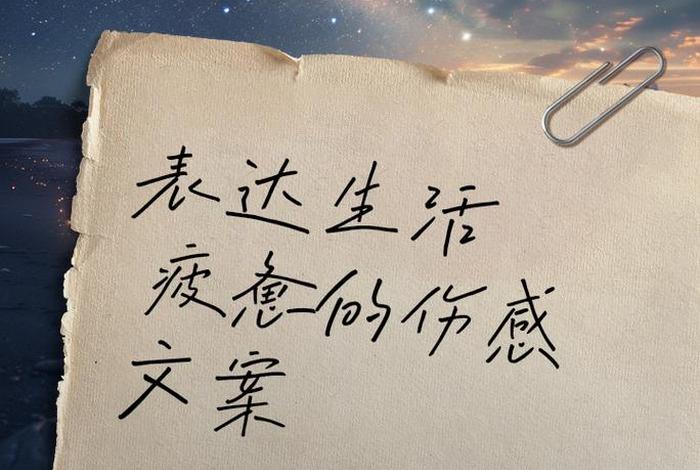 表达生活
疲惫的伤感
文案